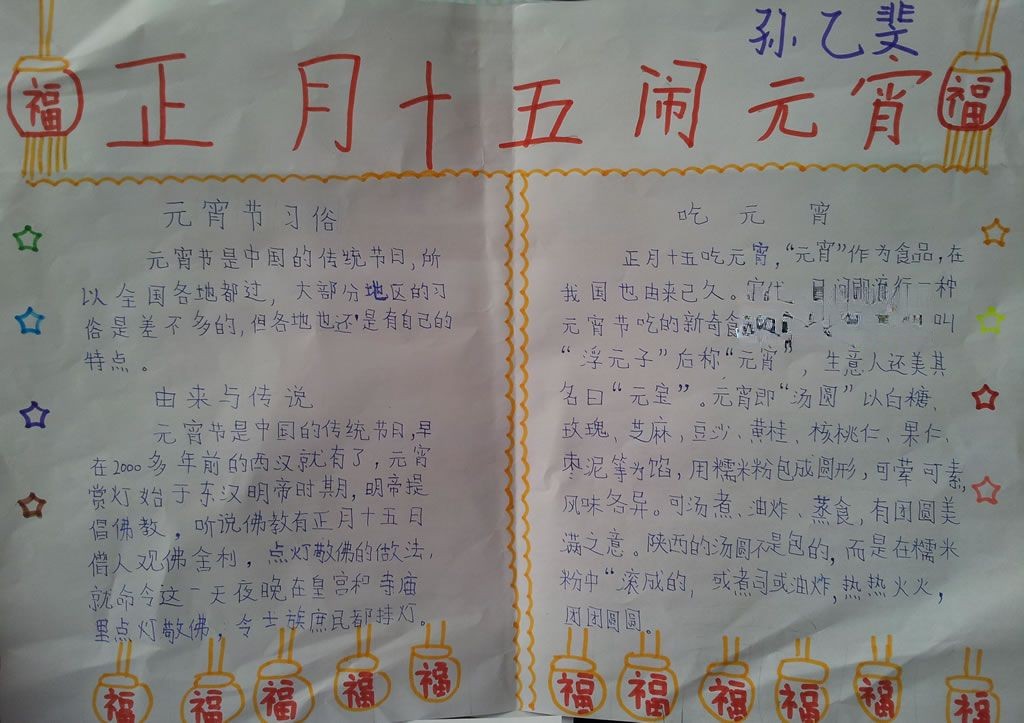 孙乙斐
福 正月十五闹元宵 福
元宵节习俗
元宵节是中国的传统节日,所
以全国各地都过,大部份地区的习
俗是差不多的,但各地也还是有自己的
特点。
由来与传说
元宵节是中国的传统节日,早
在2000多年前的西汉就有了,元宵
赏灯始于东汉明帝时期,明帝提
倡佛教,听说佛教有正月十五日
僧人观佛舍利,点灯敬佛的做法,
就命令这一天夜晚在皇宫和寺庙
里点灯敬佛,令士族庶民都挂灯。
吃元宵
正月十五吃元宵,“元宵”作为食品,在
我国也由来已久。宋代 民间即流行一种
元宵节吃的新奇食 叫
“浮元子”后称“元宵”,生意人还美其
名曰“元宝”。元宵即“汤圆”以白糖、
玫瑰、芝麻,豆沙、黄桂、核桃仁、果仁、
枣泥等为馅,用糯米粉包成圆形,可荤可素,
风味各异。可汤煮、油炸、蒸食,有团圆美
满之意。陕西的汤圆不是包的,而是在糯米
粉中“滚成的,或煮司或油炸,热热火火,
团团圆圆。
福 福 福 福 福 福 福 福 福 福 福